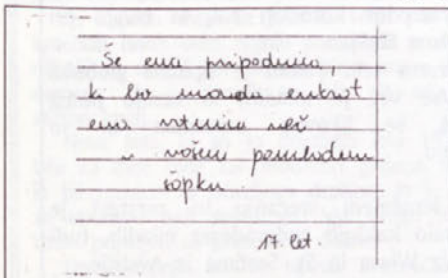 Še ena pripadnica,
ki bo morda enkrat
ena vrtnica več
v vašem pomladnem
šopku
17. let.